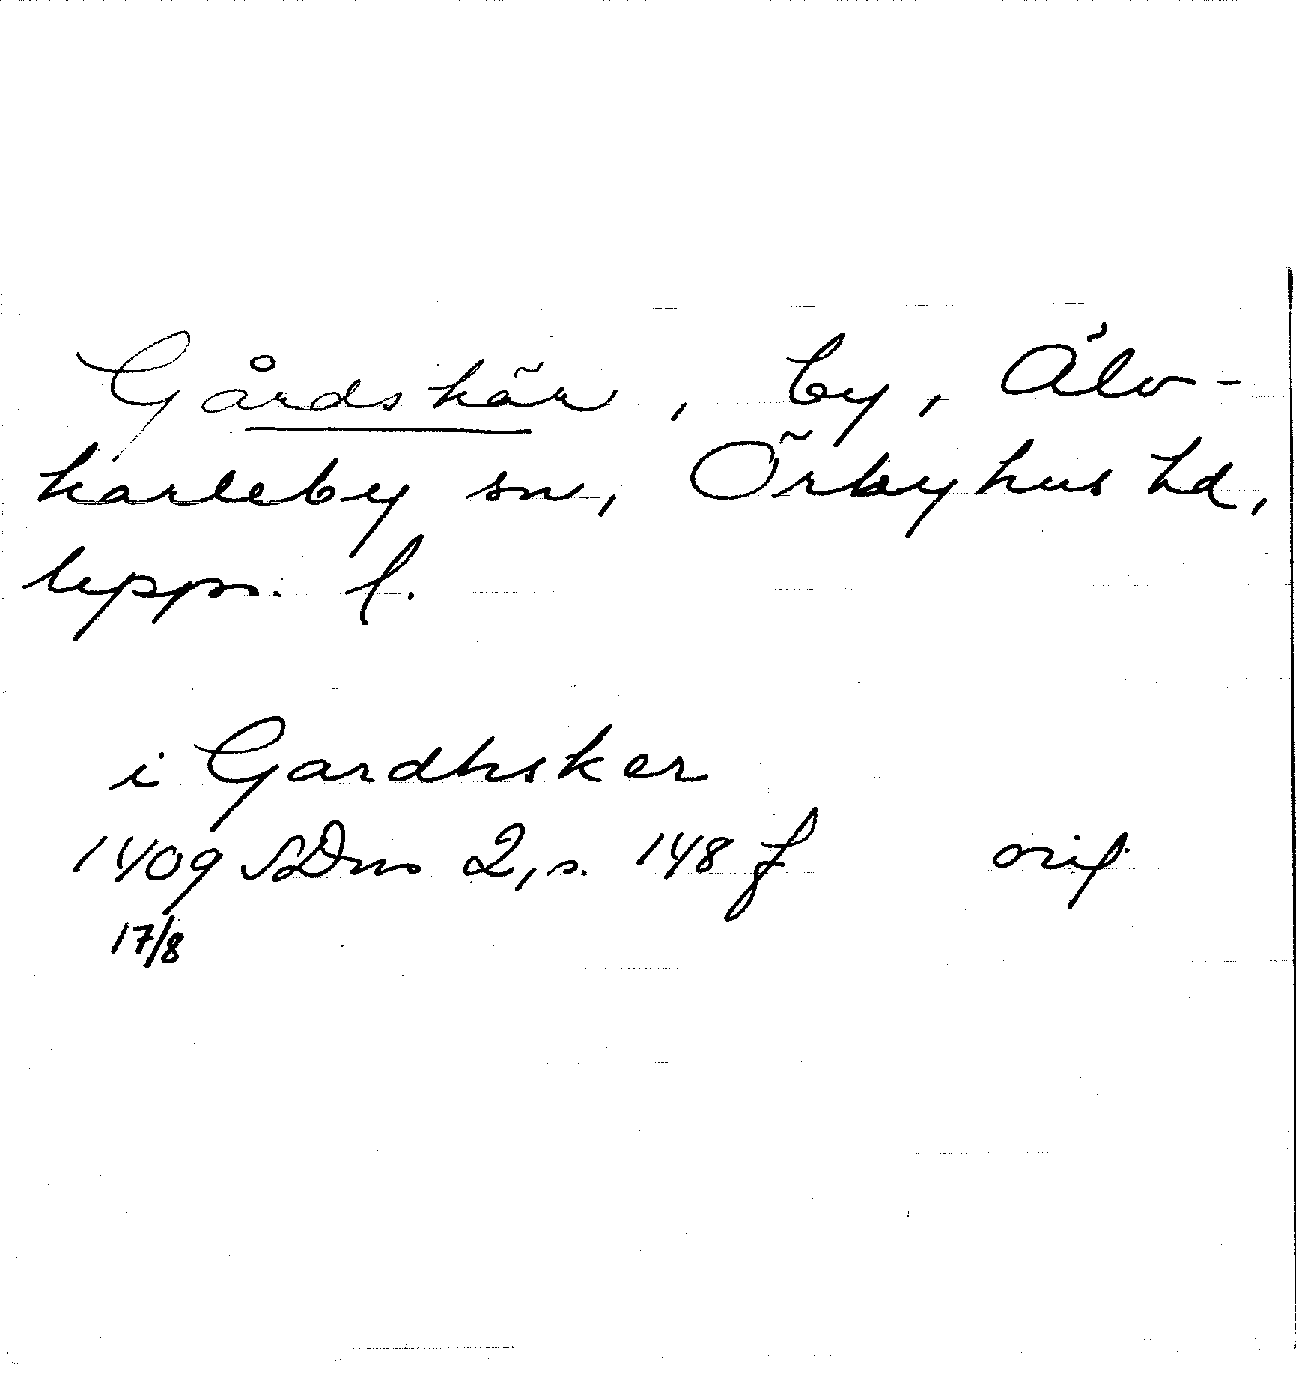 Gårdskär, by, Älv-
karleby sn, Örbyhus hd,
Upps. l.
i Gardhsker
1409 SDns 2, s. 148 f orig
17/8